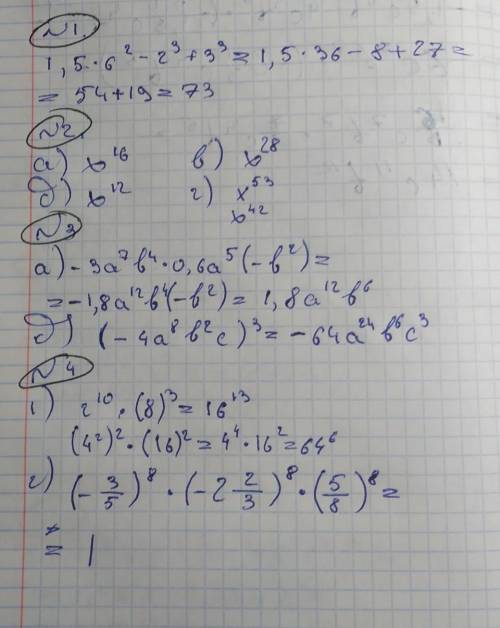 №1.
1,5·6²-2³+3³=1,5·36-8+27=
= 54+19=73
№2
а) x¹⁶ в) x²⁸
б) x¹² г) x⁵³
x⁴²
№3
а) -3a⁷b⁴·0,6a⁵(-b²)=
=-1,8a¹²b⁴(-b²)= 1,8a¹²b⁶
б) (-4a⁸b²c)³=-64a²⁴b⁶c³
№4
1) 2¹⁰·(8)³=16¹³
(4²)²·(16)²=4⁴·16²=64⁶
2) (-3/5)⁸·(-2 2/3)⁸·(5/8)⁸=
= 1